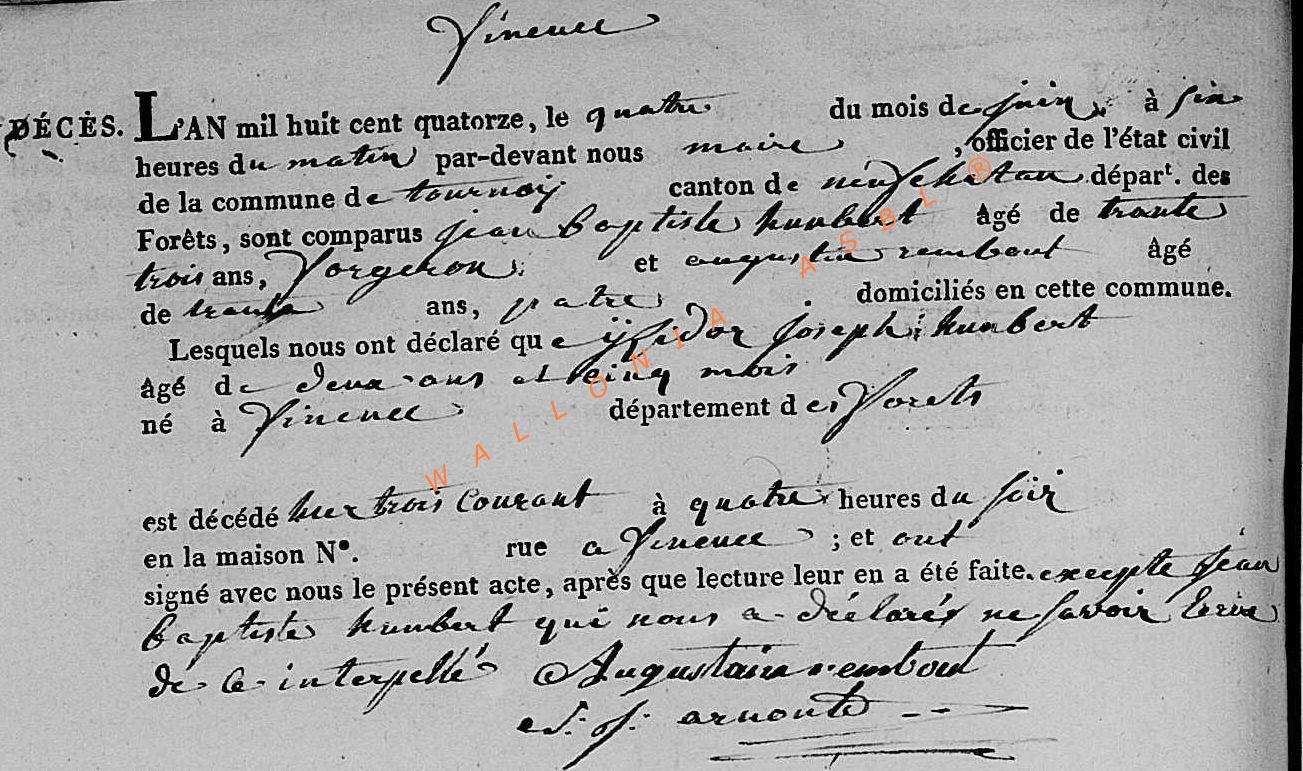 Vineuee
DÉCÈS. L'AN mil huit cent quatorze, le quatre du mois de juin à six
heures du matin par-devant nous maire, officier de l'état civil
de la commune de tournaÿ canton de neufchatau départ. des
Forêts, sont comparus jean baptiste humbert âgé de trante
trois ans, Forgeron et augustin rembout âgé
de trante ans, patre domiciliés en cette commune.
Lesquels nous ont déclaré que ÿsidor joseph humbert
âgé de deux ans et cinq mois
né à Vineuee département des Forets
est décédé hier trois courant à quatre heures du soir
en la maison N°. rue a Vineuee ; et ont
signé avec nous le présent acte, après que lecture leur en a été faite. excepte jean
baptiste humbert qui nous a déclarés ne savoir Ecrire
de ce interpellé Augustain rembout
arnould
WALLONIA ASBL ®